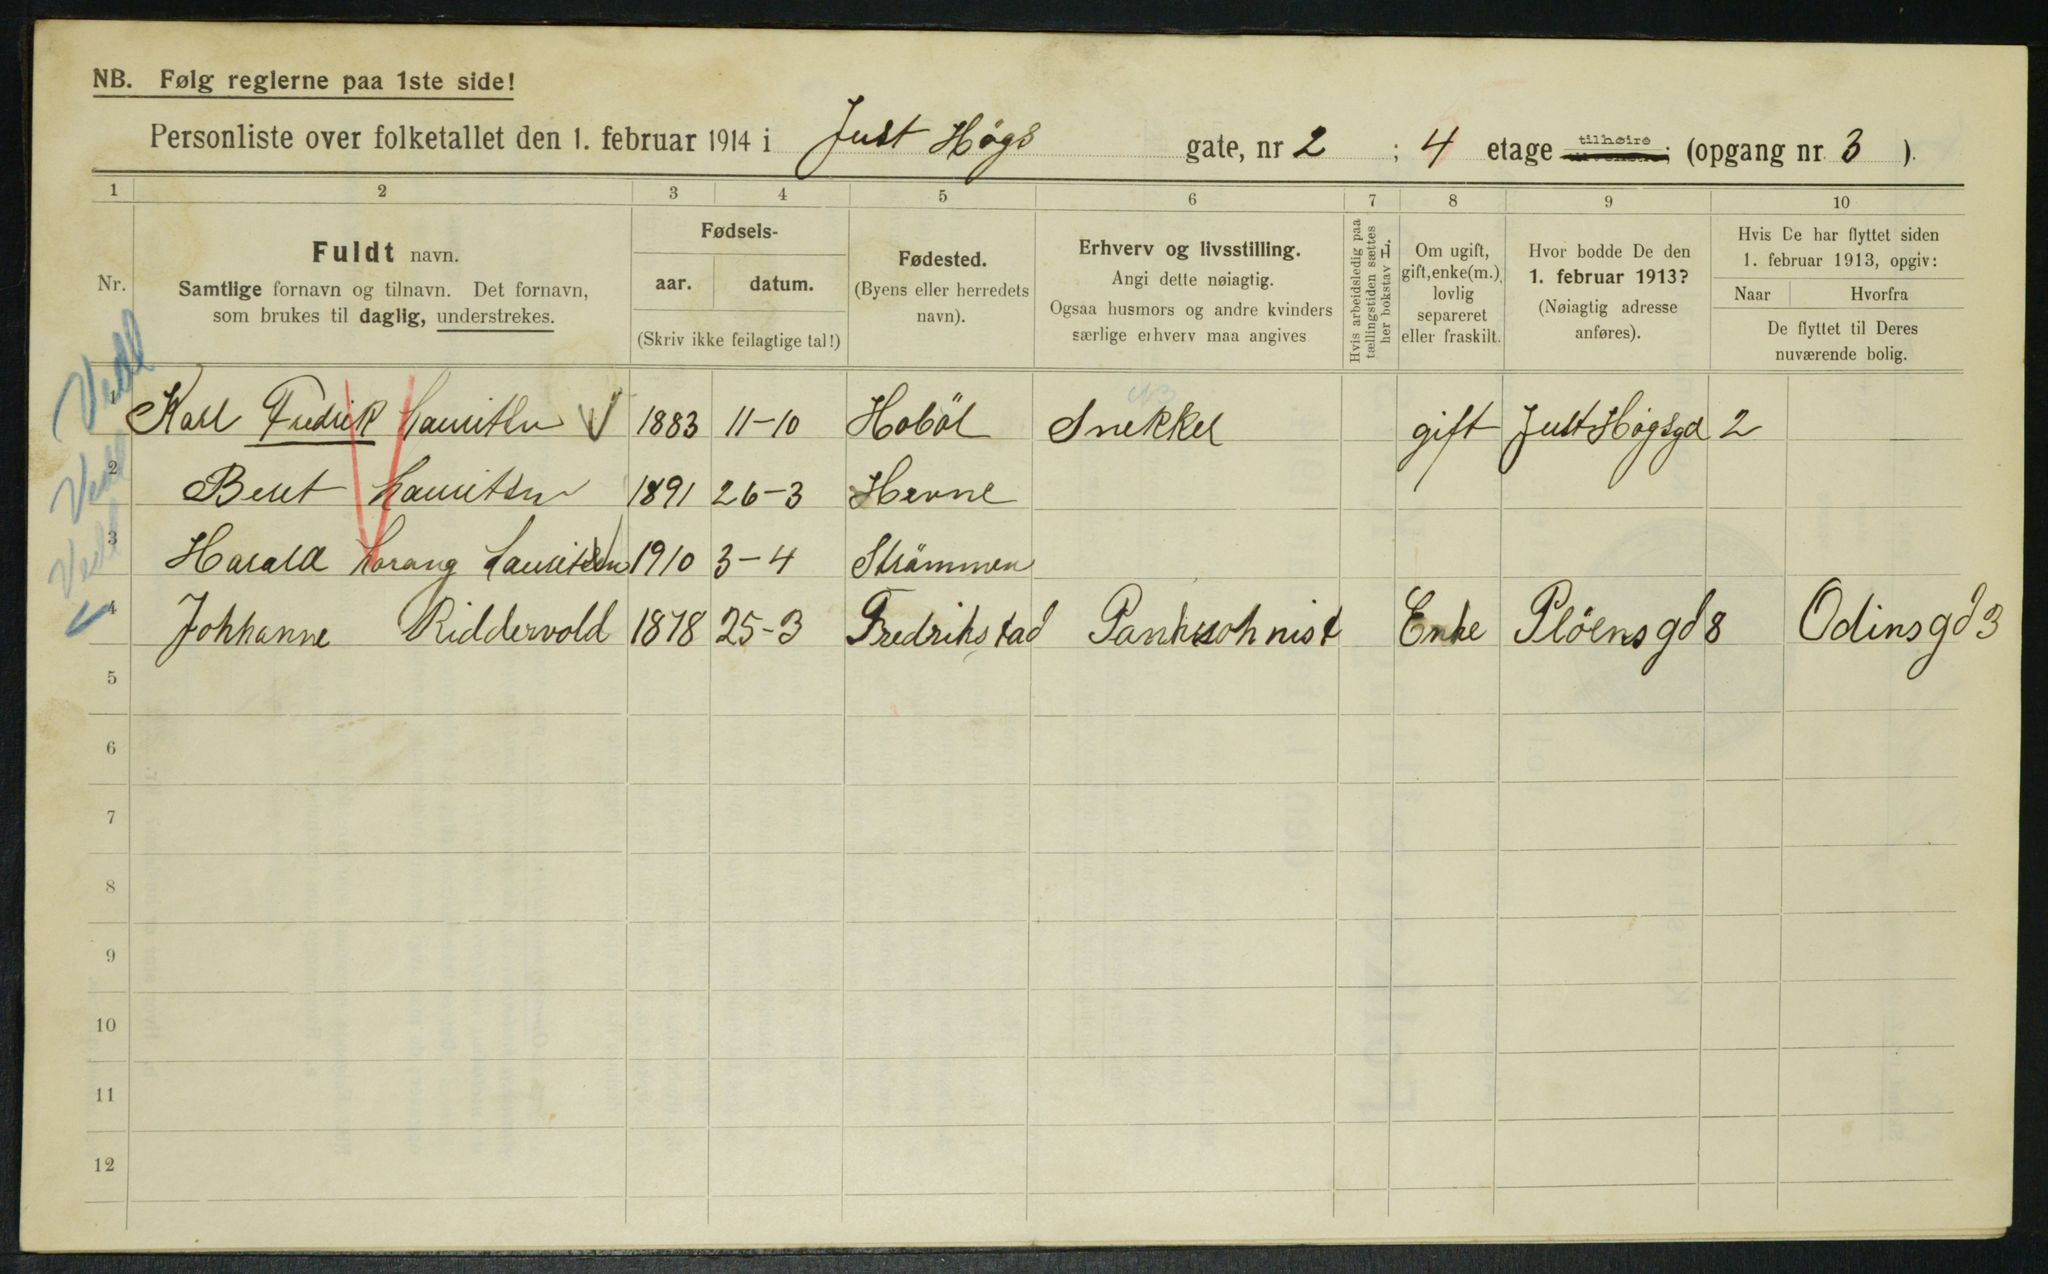 NB. Følg reglerne paa 1ste side!
Personliste over folketallet den 1. februar 1914 i Just Høgs gate, nr 2 ; 4 etage tilhøire (opgang nr. 3 ).
1 2 3 4 5 6 7 8 9 10
Nr.
Fuldt navn.
Samtlige fornavn og tilnavn. Det fornavn,
som brukes til daglig, understrekes.
Fødsels-
aar. datum.
(Skriv ikke feilagtige tal!)
Fødested.
(Byens eller herredets
navn).
Erhverv og livsstilling.
Angi dette nøiagtig.
Ogsaa husmors og andre kvinders
særlige erhverv maa angives
Hvis arbeidsledig paa
tællingstiden sættes
her bokstav L.
Om ugift,
gift, enke(m.),
lovlig
separeret
eller fraskilt.
Hvor bodde De den
1. februar 1913?
(Nøiagtig adresse
anføres).
Hvis De har flyttet siden
1. februar 1913, opgiv:
Naar Hvorfra
De flyttet til Deres
nuværende bolig.
1 Karl Fredrik Lauritsen 1883 11-10 Haböl Snekker gift Just Høgsgd 2
2 Beret Lauritsen 1891 26-3 Hevne
3 Harald Lorang Lauritsen 1910 3-4 Strömmen
4 Johhanne Riddervold 1878 25-3 Fredrikstad Enke Plöensgd 8 Odinsgd 3
5
6
7
8
9
10
11
12